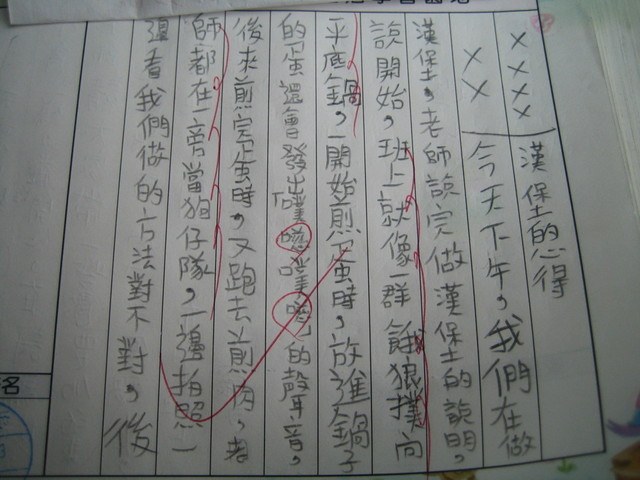 ××××漢堡的心得
××今天下午，我們在做
漢堡，老師說完做漢堡的說明，
說開始，班上就像一群餓狼撲向
平底鍋，一開始煎蛋時，放進鍋子
的蛋還會發出「噗嗞噗嗞」的聲音，
後來煎完蛋時，又跑去煎肉，老
師都在旁當狗仔隊，一邊拍照一
邊看我們做的方法對不對，後
名